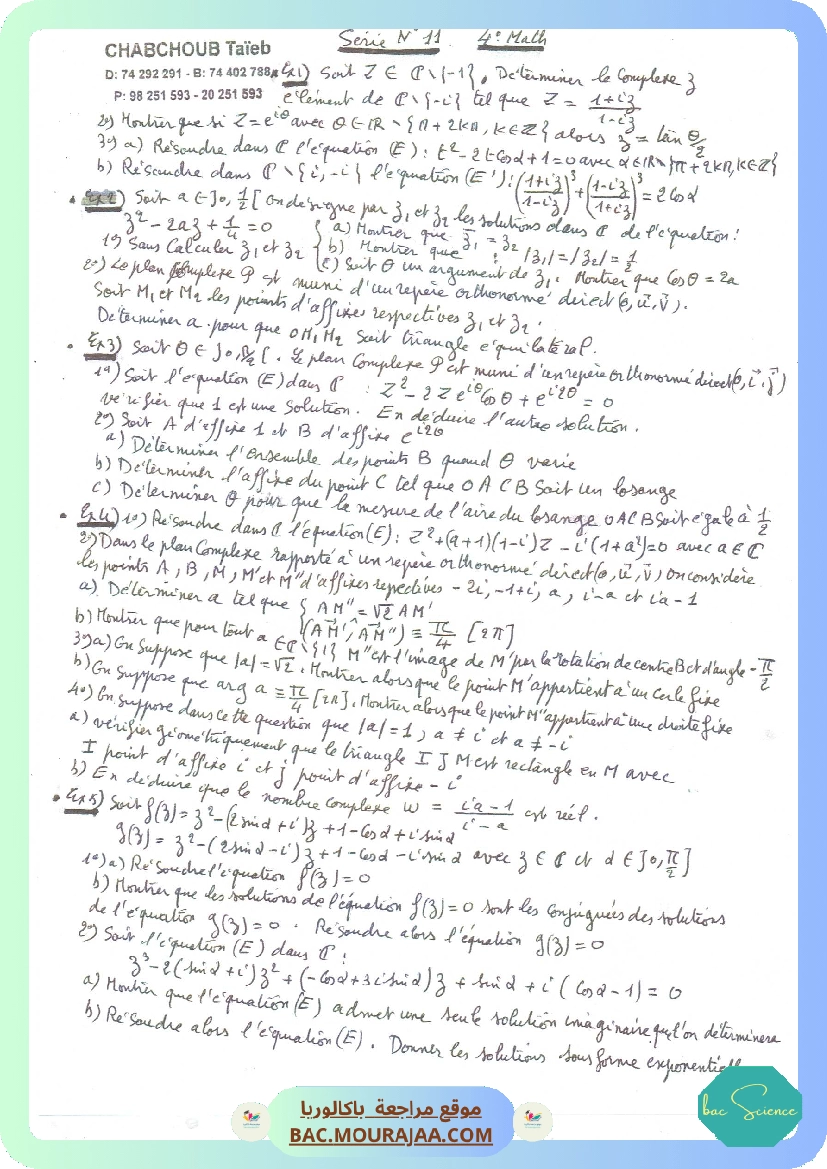 Série N° 11 4e Math
CHABCHOUB Taïeb
D: 74 292 291 - B: 74 402 788
P: 98 251 593 - 20 251 593
Ex1) Soit Z ∈ ℂ\{-1}, Déterminer le Complexe z
élément de ℂ\{-i} tel que Z = (1+iz)/(1-iz)
2°) Montrer que si Z = e^{iθ} avec θ ∈ ℝ \ {π + 2kπ, k∈ℤ} alors z = tan θ/2
3°) a) Résoudre dans ℂ l'équation (E) : t² - 2t cos α + 1 = 0 avec α ∈ ℝ\{π + 2kπ, k∈ℤ}
b) Résoudre dans ℂ \ {i, -i} l'équation (E') : ((1+iz)/(1-iz))³ + ((1-iz)/(1+iz))³ = 2 cos α
Ex2) Soit a ∈ ]0, 1/2[ On désigne par z₁ et z₂ les solutions dans ℂ de l'équation :
z² - 2az + 1/4 = 0
1°) Sans Calculer z₁ et z₂ { a) Montrer que z̄₁ = z₂
b) Montrer que : |z₁| = |z₂| = 1/2
c) Soit θ un argument de z₁. Montrer que cos θ = 2a
2°) Le plan complexe P est muni d'un repère orthonormé direct (o, u⃗, v⃗).
Soit M₁ et M₂ les points d'affixes respectives z₁ et z₂.
Déterminer a pour que OM₁M₂ soit triangle équilatéral.
Ex3) Soit θ ∈ ]0, π/2[. Le plan Complexe P est muni d'un repère orthonormé direct (o, i⃗, j⃗)
1°) Soit l'équation (E) dans ℂ : Z² - 2Z e^{iθ} cos θ + e^{i2θ} = 0
Vérifier que 1 est une solution. En déduire l'autre solution.
2°) Soit A d'affixe 1 et B d'affixe e^{i2θ}
a) Déterminer l'ensemble des points B quand θ varie
b) Déterminer l'affixe du point C tel que OACB soit un losange
c) Déterminer θ pour que la mesure de l'aire du losange OACB soit égale à 1/2
Ex4) 1°) Résoudre dans ℂ l'équation (E) : Z² + (a+1)(1-i)Z - i(1+a²) = 0 avec a ∈ ℂ
2°) Dans le plan Complexe rapporté à un repère orthonormé direct (o, u⃗, v⃗) On considère
les points A, B, M, M' et M'' d'affixes repectives - 2i, -1+i, a, i-a et ia-1
a) Déterminer a tel que { AM'' = √2 AM'
(AM⃗', AM⃗'') ≡ π/4 [2π]
b) Montrer que pour tout a ∈ ℂ\{1} M'' est l'image de M' par la rotation de centre B et d'angle -π/2
3°) a) On suppose que |a| = √2. Montrer alors que le point M' appartient à un cercle fixe
b) On suppose que arg a ≡ π/4 [2π]. Montrer alors que le point M'' appartient à une droite fixe
4°) On suppose dans cette question que |a| = 1, a ≠ i et a ≠ -i
a) vérifier géométriquement que le triangle IJM est rectangle en M avec
I point d'affixe i et J point d'affixe - i
b) En déduire que le nombre complexe w = (ia-1)/(i-a) est réel.
Ex5) Soit f(z) = z² - (2sin α + i)z + 1 - cos α + i sin α
g(z) = z² - (2sin α - i)z + 1 - cos α - i sin α avec z ∈ ℂ et α ∈ ]0, π/2]
1°) a) Résoudre l'équation f(z) = 0
b) Montrer que les solutions de l'équation f(z) = 0 sont les conjuguées des solutions
de l'équation g(z) = 0. Résoudre alors l'équation g(z) = 0
2°) Soit l'équation (E) dans ℂ :
z³ - 2(sin α + i)z² + (-cos α + 3i sin α)z + sin α + i(cos α - 1) = 0
a) Montrer que l'équation (E) admet une seule solution imaginaire que l'on déterminera
b) Résoudre alors l'équation (E). Donner les solutions sous forme
موقع مراجعة باكالوريا
BAC.MOURAJAA.COM
bac Science